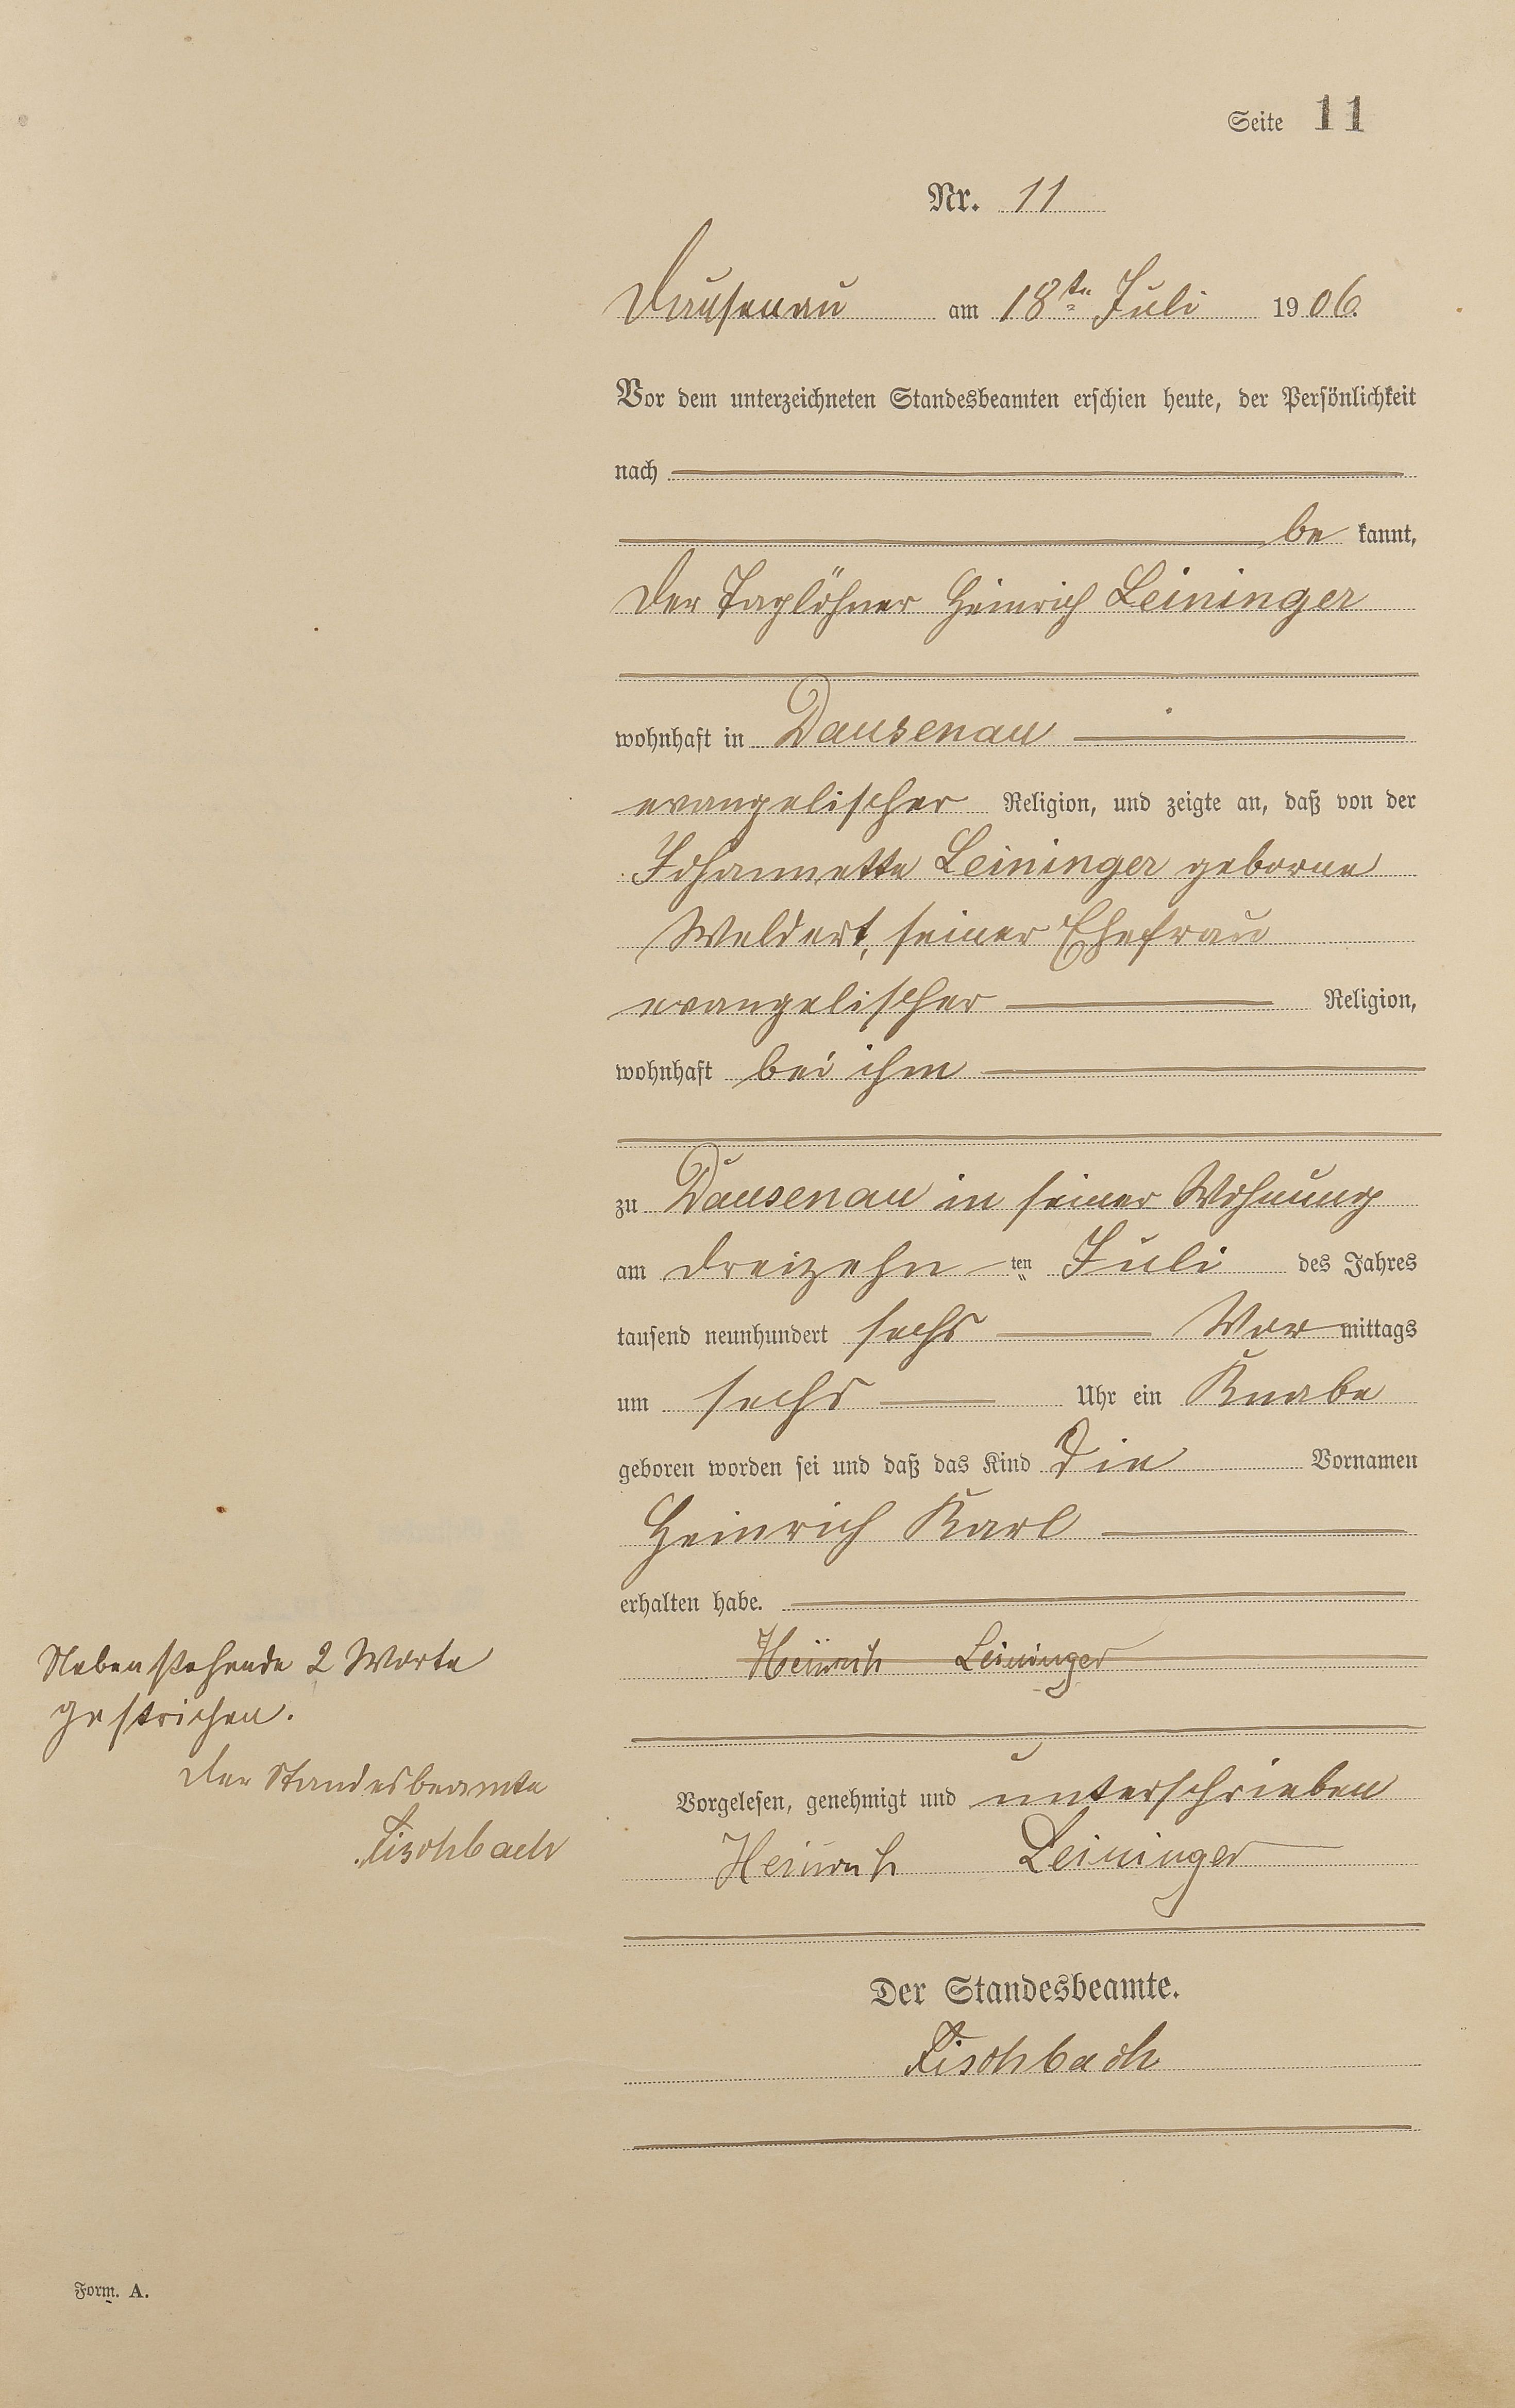 Seite 11
Nr. 11
Dausenau am 18ten Juli 1906.
Vor dem unterzeichneten Standesbeamten erschien heute, der Persönlichkeit
nach
be kannt,
der Taglöhner Heinrich Leininger
wohnhaft in Dausenau
evangelischer Religion, und zeigte an, daß von der
Johannette Leininger geborne
Weldert, seiner Ehefrau
evangelischer Religion,
wohnhaft bei ihm
zu Dausenau in seiner Wohnung
am dreizehn ten Juli des Jahres
tausend neunhundert sechs Vor mittags
um sechs Uhr ein Knabe
geboren worden sei und daß das Kind die Vornamen
Heinrich Karl
erhalten habe.
Heinrich Leininger
Nebenstehende 2 Worte
gestrichen.
Der Standesbeamte
Fischbach
Vorgelesen, genehmigt und unterschrieben
Heinrich Leininger
Der Standesbeamte.
Fischbach
Form. A.